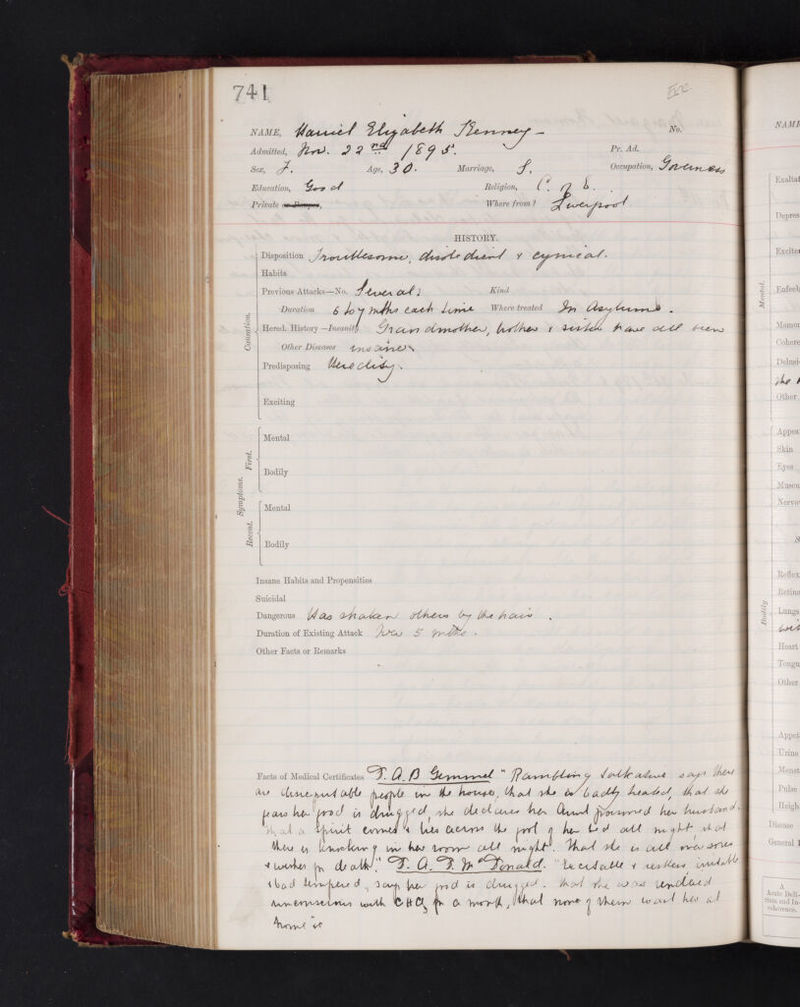 741
NAME, Harriet Elizabeth Kenney - No.
Admitted, Nov. 22nd 1895. Pr. Ad.
Sex, F. Age, 30. Marriage, S. Occupation, Governess
Education, Good Religion, C. of E.
Private or Pauper, Where from? Liverpool
HISTORY.
Disposition Troublesome, disobedient & cynical.
Habits
Previous Attacks—No. Several: Kind
Duration 6 to 7 mths each time Where treated In Asylums.
Hered. History—Insanity. Grandmother, brother & sister have all been
Other Diseases insane
Predisposing Heredity.
Exciting
Causation.
Mental
Bodily
Mental
Bodily
Symptoms.
First.
Recent.
Insane Habits and Propensities
Suicidal
Dangerous Has shaken others by the hair.
Duration of Existing Attack Over 5 mths.
Other Facts or Remarks
Facts of Medical Certificates T. A. B Gemmel "Rambling talkative says there
are disreputable people in the house, that she is badly treated, that she
fears her food is drugged, she declares her Aunt poisoned her husband.
that a spirit comes & lies across the foot of her bed all night, that
there is knocking in her room all night. That she is all over sores
& wishes for death." T. A. T. McDonald. "Excitable & restless irritable
& bad tempered, says her food is drugged. that she was rendered
unconscious with CHCl3 for a month, that none of them want her at
home
NAME
Exaltat
Depres
Excite
Enfeeb
Memor
Cohere
Delusi
she
Other
Mental.
Appea
Skin
Eyes
Muscu
Nervo
S
Reflex
Retina
Lungs
Heart
Tongu
Other
Bodily
Appet
Urine
Menst
Pulse
Heigh
Disease
General
A
Acute Deli-